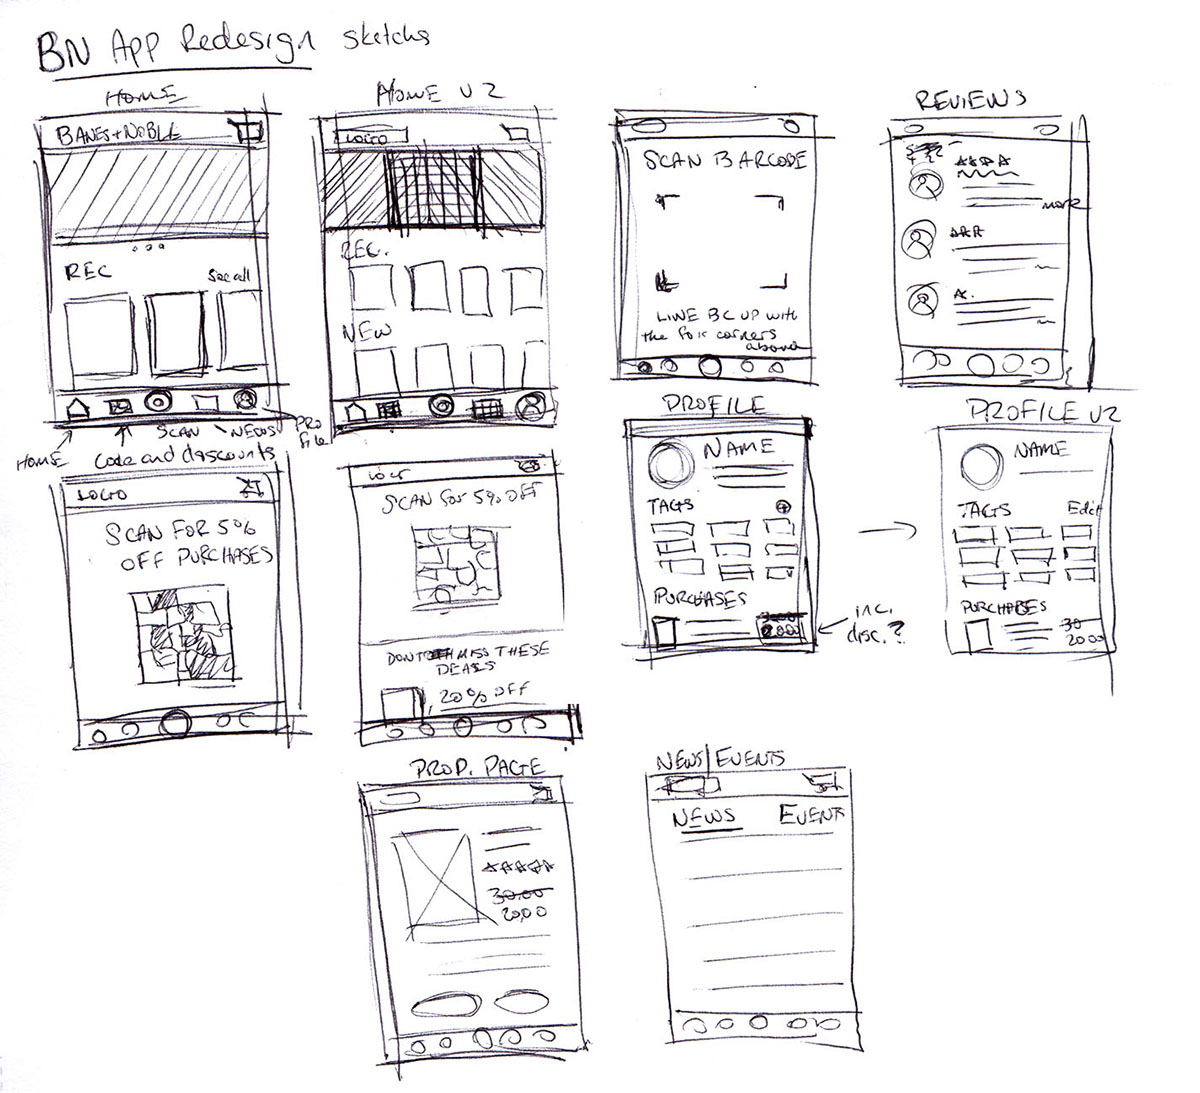 BN App Redesign sketchs
HOME
BANES+NOBLE
REC
See all
HOME
code and discounts
SCAN
NEWS
PROFILE
HOME V2
LOGO
REC.
NEW
SCAN BARCODE
LINE BC UP with
the four corners
above
REVIEWS
more
LOGO
SCAN FOR 5%
OFF PURCHASES
LOGO
SCAN FOR 5% OFF
DON'T MISS THESE
DEALS
20% OFF
PROFILE
NAME
TAGS
PURCHASES
20.00
inc.
disc.?
PROFILE V2
NAME
TAGS
Edit
PURCHASES
30
20.00
PROD. PAGE
30.00
20.00
NEWS/EVENTS
NEWS
EVENTS